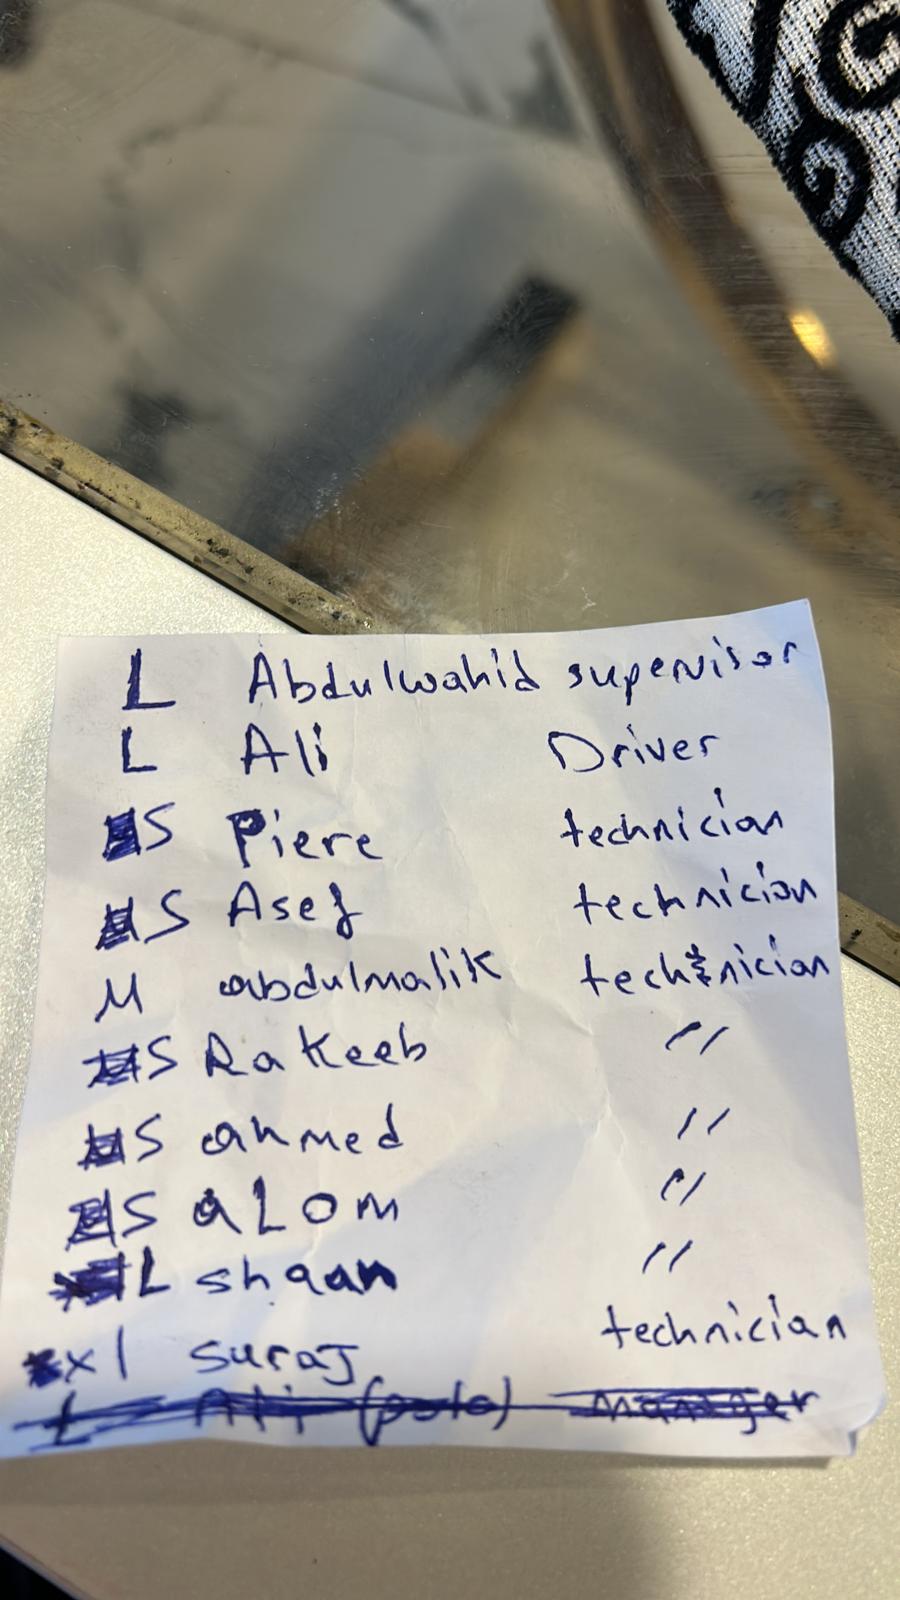 L Abdulwahid supervisor
L Ali Driver
S Piere technician
S Asef technician
M abdulmalik technician
S Rakeeb "
S ahmed "
S aLom "
L shaan "
xl suraj technician
L Ali (polo) manager